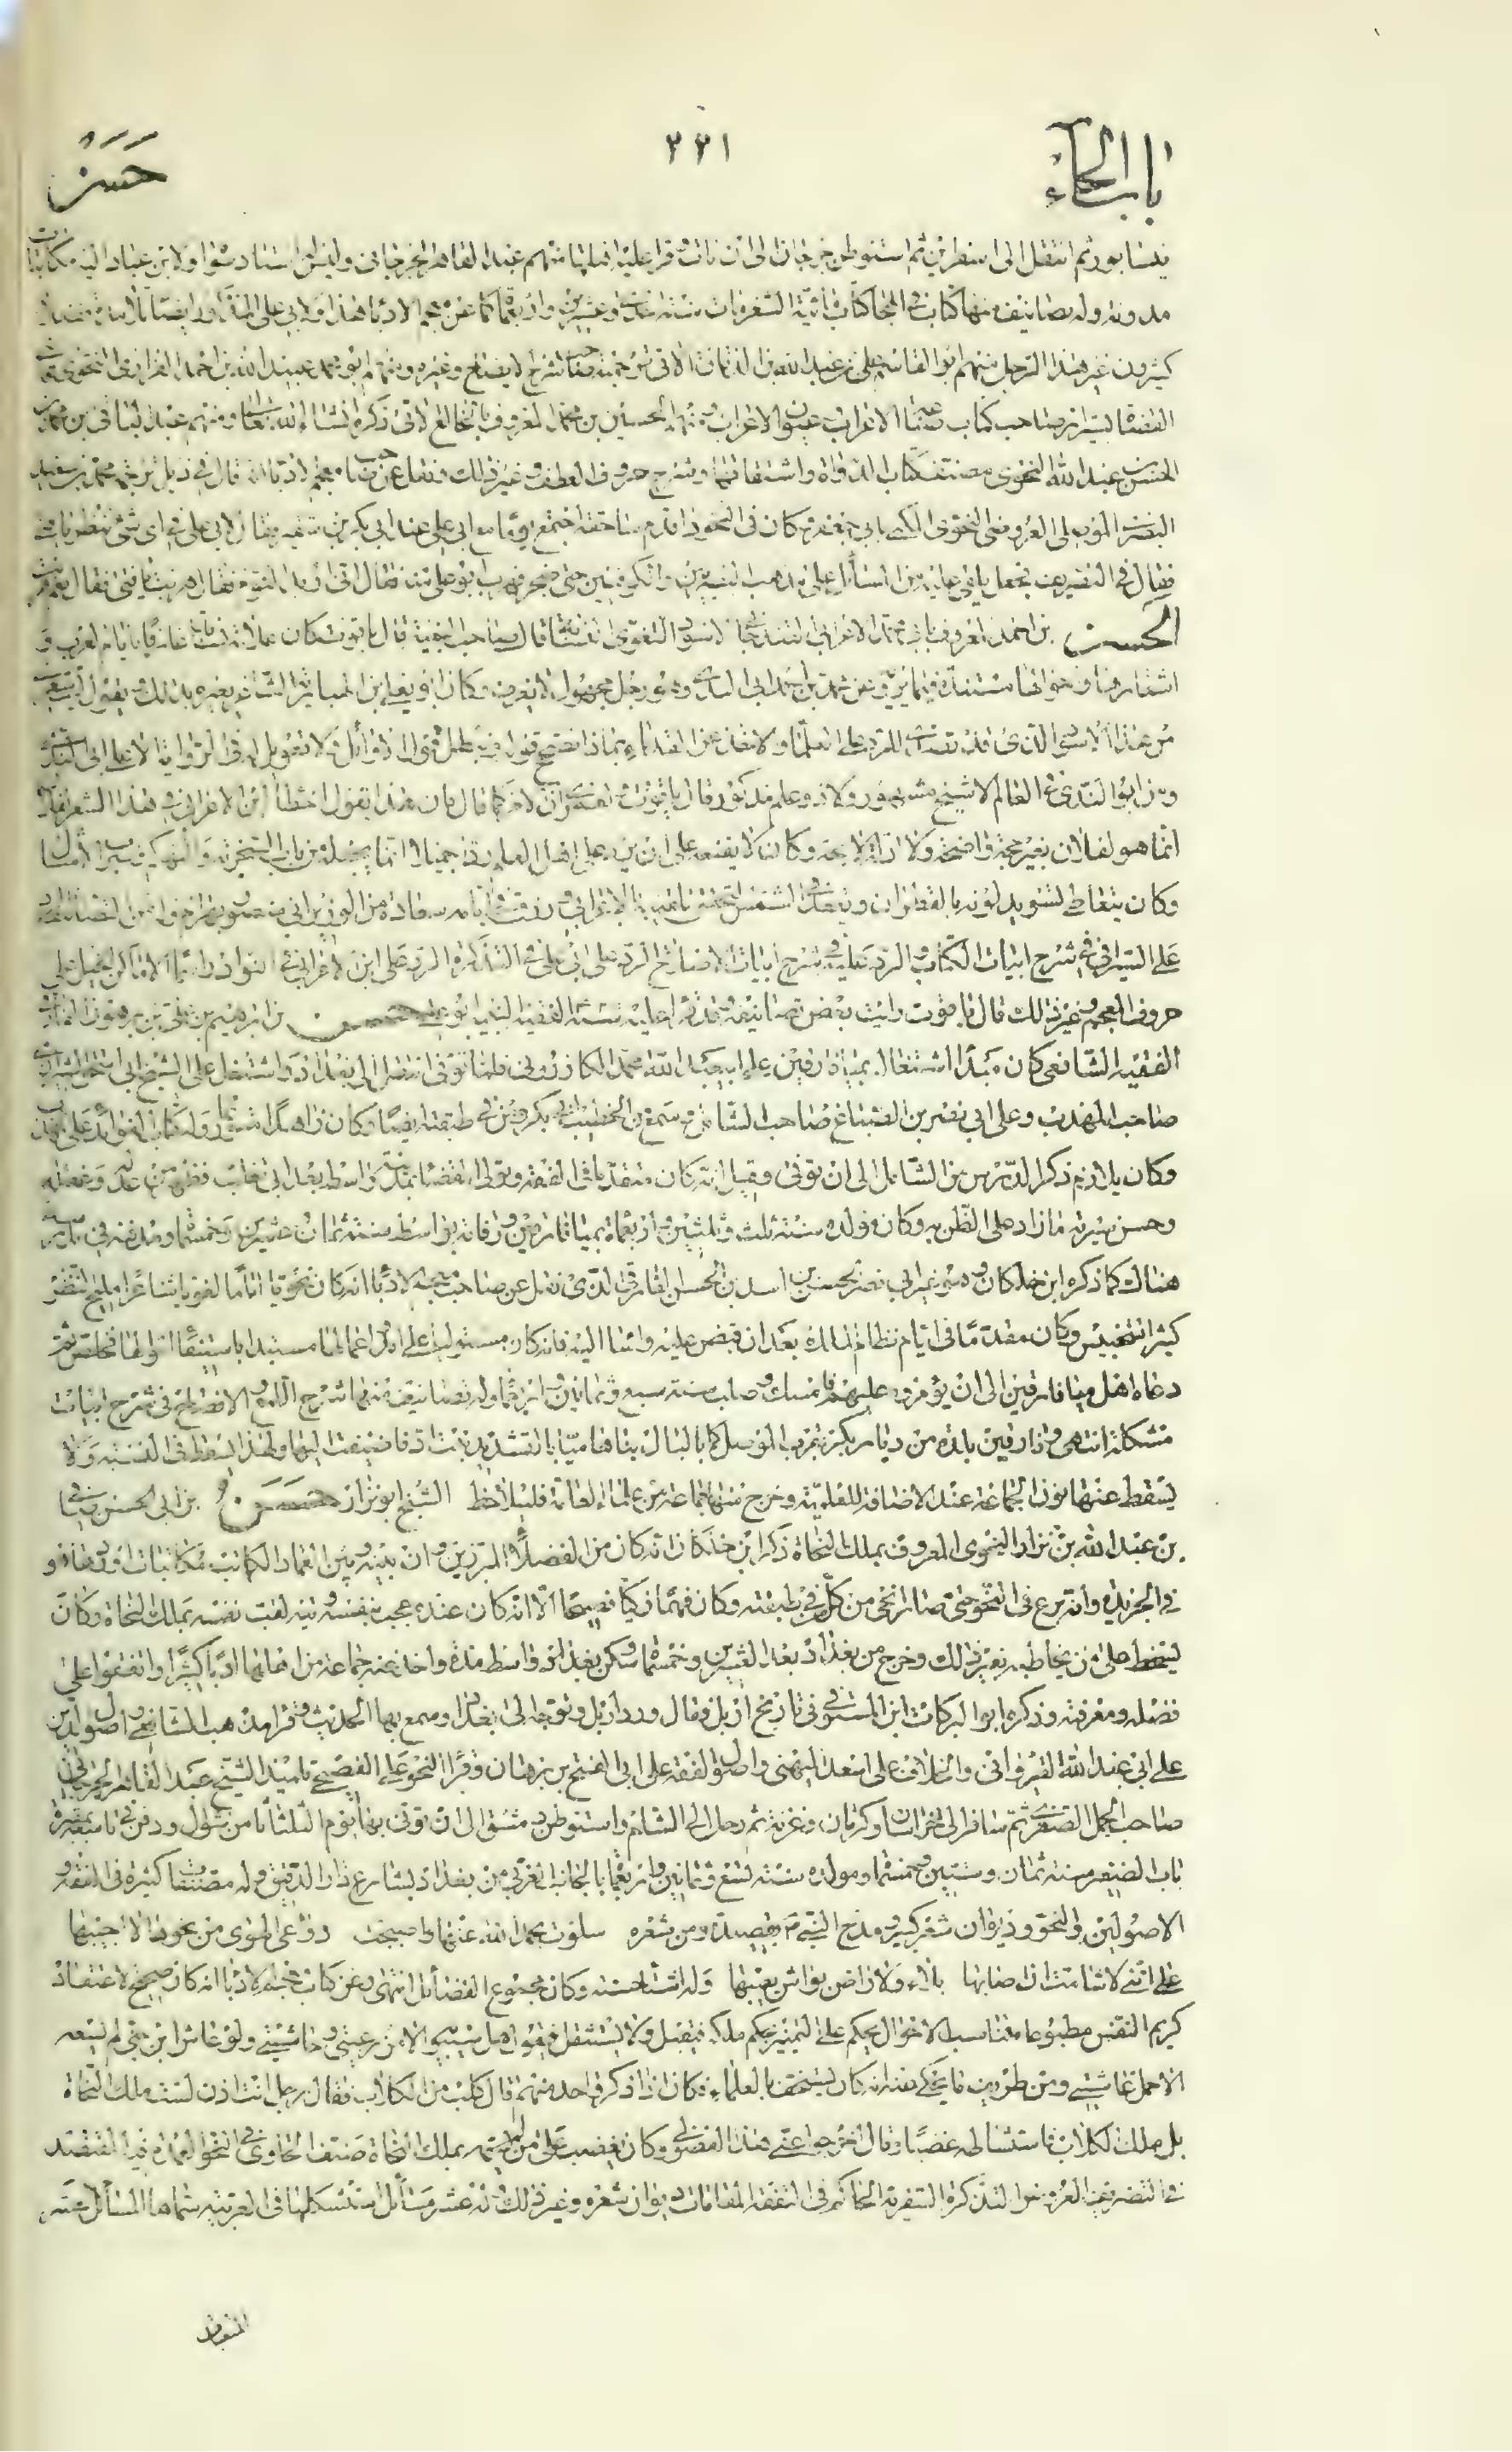 باب الحاء
٢٢١
حَسَنٌ
نيسابور ثم انتقل الى اسفراين ثم استوطن جرجان الى ان مات وقرأ عليه اهلها منهم عبد القاهر الجرجانى وليس له استاد سواه ولابن عباد اليه مكاتبات
مدونة وله تصانيف منها كتاب فى الهجا كتاب الشعر مات سنة احدى وعشرين واربعمائة كما عن معجم الادبا هذا ولابى على المذكور ايضا تلامذة
كثيرون غير هذا الرجل منهم ابو القاسم على بن عبيد الله الدقاق الاتى ترجمته صاحب شرح الايضاح وغيره ومنهم ابو محمد عبيد الله بن احمد الفزارى النحوى قاضى
القضاة بشيراز صاحب كتاب صناعة الاعراب وعيون الاعراب ومنهم الحسين بن محمد المعروف بالخالع الاتى ذكره انشاء الله تعالى ومنهم عبد الباقى بن محمد بن
الحسن بن عبد الله النحوى مصنف كتاب الدواة واشتقاقها وشرح حروف العطف وغير ذلك ونقل عن صاحب معجم الادبا انه قال فى ذيل ترجمة محمد بن سعيد
البصير الموصلى العروضى النحوى المكنى بابى جعفر كان فى النحو ذا قدم سابقة اجتمع يوما مع ابى على عند ابى بكر بن شقير فقال لابى على فى اى شئ تنظر يا فتى
فقال فى التصريف فجعل يلقى عليه من المسائل على مذهب البصريين والكوفيين حتى ضجر فهرب ابو على منه فقال انى اريد النوم فقال هربت يا فتى فقال نعم هربت
الحسن بن احمد المعروف بابى محمد الاعرابى الغندجانى الاسود اللغوى النسابة قال صاحب البغية قال ياقوت كان علامة نسابة عارفا بايام العرب و
اشعارها واحوالها مستنده فيما يرويه عن محمد بن احمد ابى الندى وهو رجل مجهول لا نعرفه وكان ابو يعلى ابن الهبارية الشاعر يعيره بذلك ويقول ليت شعرى
من هذا الاسود الذى قد تصدى للرد على العلماء والاخذ عن القدماء بماذا نصحح قوله ونبطل قول الاوائل ولا تعويل له فى الرواية الا على ابى الندى
ومن ابو الندى فى العالم لا شيخ مشهور ولا ذو علم مذكور قال ياقوت ولعمرى ان الامر كما قال فان هذا يقول اخطأ ابن الاعرابى فى هذا الشعر لفلان
انما هو لفلان بغير حجة واضحة ولا ادلة لائحة وكان لا يقنعه على ان يرد على اهل العلم ردا جميلا انما يجعله من باب السخرية والتهكم وضرب الامثال
وكان يتعاطى تسويد لونه بالقطران ويقعد فى الشمس ليتحقق تلقيبه بالاعرابى ورزق فى ايامه سعادة من الوزير ابى منصور بهرام وله من التصانيف الرد
على السيرافى فى شرح ابيات الكتاب والرد عليه فى شرح ابيات الاصلاح الرد على ابى على فى التذكرة الرد على ابن الاعرابى فى النوادر اسماء الاماكن الخيل على
حروف المعجم وغير ذلك قال ياقوت رايت بعض تصانيفه وقد قرئ عليه سنة الفقيه النبيه ابو على حسن بن ابرهيم بن على بن برهون الفارقى
الفقيه الشافعى كان مبدأ اشتغاله بميافارقين على ابى عبد الله محمد الكازرونى فلما توفى انتقل الى بغداد واشتغل على الشيخ ابى اسحق الشيرازى
صاحب المهذب وعلى ابى نصر بن الصباغ صاحب الشامل وسمع من الخطيب ابى بكر ومن فى طبقته ايضا وكان زاهدا متورعا وله كتاب الفوائد على المهذب
وكان يلازم ذكر الدرس من الشامل الى ان توفى وقيل انه كان متقدما فى الفقه وتولى القضاء بمدينة واسط بعد ابى تغلب فظهر من عدله وعقله
وحسن سيرته ما زاد على الظن به وكان مولده سنة ثلث وثلثين واربعمائة بميافارقين ووفاته بواسط سنة ثمان وعشرين وخمسمائة ومدفنه فى مدرسته
هناك كما ذكره ابن خلكان وهو غير ابى نصر الحسن بن اسد بن الحسن الفارقى الذى نقل عن صاحب معجم الادبا انه كان نحويا اماما لغويا شاعرا مليح النظر
كثير التجنيس وكان مقدما فى ايام نظام الملك بعد ان قبض عليه واساء اليه فانه كان مستوليا على امد واعمالها مستبدا باستيفاء اموالها فخلص ثم
دعاه اهل ميافارقين الى ان يؤمروه عليهم فامسك وصلب سنة سبع وثمانين واربعمائة وله تصانيف منها شرح اللمع والافصاح فى شرح ابيات
مشكلة انتهى وفارقين بلدة من ديار بكر بقرب الموصل كما بالبال بناها ميا بالتشديد بنت اد فاضيفت اليها ولهذا يسقط فى النسبة ولا
يسقط عنها نون الجماعة عند الاضافة للعلمية وخرج منها جماعة من علماء العامة فليلاحظ الشيخ ابو نزار حسن بن ابى الحسن صافى
بن عبد الله بن نزار النحوى المعروف بملك النحاة ذكر ابن خلكان انه كان من الفضلاء المبرزين وان بينه وبين العماد الكاتب مكاتبات اوردها فى
فى الجزيدة وانه برع فى النحو حتى صار انحى من كل من فى طبقته وكان فهما ذكيا فصيحا الا انه كان عنده عجب بنفسه وتيه لقب نفسه بملك النحاة وكان
يسخط على من يخاطبه بغير ذلك وخرج من بغداد بعد العشرين وخمسمائة وسكن بغداد واسط مدة واخذ عنه جماعة من اهلها ادبا كثيرا واتفقوا على
فضله ومعرفته وذكره ابو البركات ابن المستوفى فى تاريخ اربل فقال ورد اربل وتوجه الى بغداد وسمع بها الحديث وقرأ مذهب الشافعى واصول الدين
على ابى عبد الله القيروانى والخلاف على اسعد الميهنى واصول الفقه على ابى الفتح بن برهان وقرأ النحو على الفصيحى تلميذ الشيخ عبد القاهر الجرجانى
صاحب الجمل الصغرى ثم سافر الى خراسان وكرمان وغزنة ثم رحل الى الشام واستوطن دمشق الى ان توفى بها يوم الثلثا ثامن شوال ودفن فى تاسعه بمقبرة
باب الصغير سنة ثمان وستين وخمسمائة ومولده سنة تسع وثمانين واربعمائة بالجانب الغربى من بغداد بشارع دار الدقيق وله مصنفات كثيرة فى الفقه و
الاصولين والنحو وديوان شعر كبير ومدح النبى ص بقصيدة ومن شعره سلوت بحمد الله عنها فاصبحت دواعى الهوى من نحوها لا اجيبها
على اننى لا شامت ان اصابها بلاء ولا راض بواش يعيبها وله اشياء حسنة وكان مجموع الفضائل انتهى وعن كتاب معجم الادبا انه كان صحيح الاعتقاد
كريم النفس مطبوعا متناسب الاحوال يحكم على اهل التمييز بحكم ملكه فيقبل ولا يستثقل فيقول هل سيبويه الا من رعيتى وحاشيتى ولو عاش ابن جنى لم يسعه
الا حمل غاشيتى ومن طريف ما يحكى عنه انه كان يستخف بالعلماء فكان اذا ذكر واحد منهم قال كلب من الكلاب فقال رجل انت اذن لست ملك النحاة
بل ملك الكلاب فاستشاط غضبا وقال اخرجوا عنى هذا الفضولى وكان يغضب على من لم يسمه بملك النحاة صنف الحاوى فى النحو العمدة فيه المقتصد
فى التصريف العروض التذكرة السفرية الحاكم فى الفقه المقامات ديوان شعره وغير ذلك وله عشر مسائل استشكلها فى العربية سماها المسائل العشر